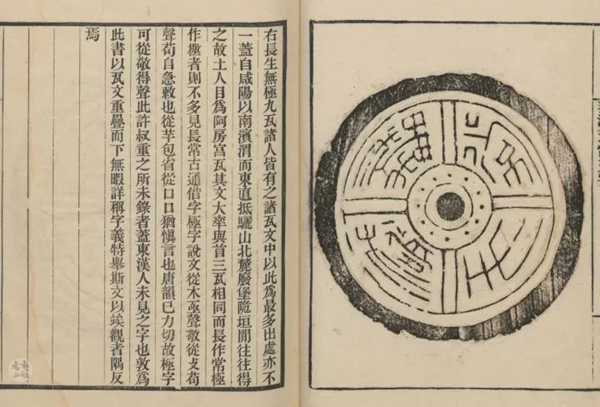 右長生無極九瓦諸人皆有之諸瓦文中以此為最多出處亦不
一蓋自咸陽以南濱渭而東直抵驪山北麓廢堡隤垣間往往得
之故土人目為阿房宮瓦其文大率與首三瓦相同而長作常極
作極者則不多見長常古通借字極字說文從木亟聲敬從攴茍
聲茍自急敕也從羊包省從口口猶慎言也唐韻己力切故極字
可從敬得聲此許叔重之所未錄者蓋東漢人未見之字也敦為
此書以瓦文重疊而下無暇詳稱字義特舉斯文以竢觀者隅反
焉